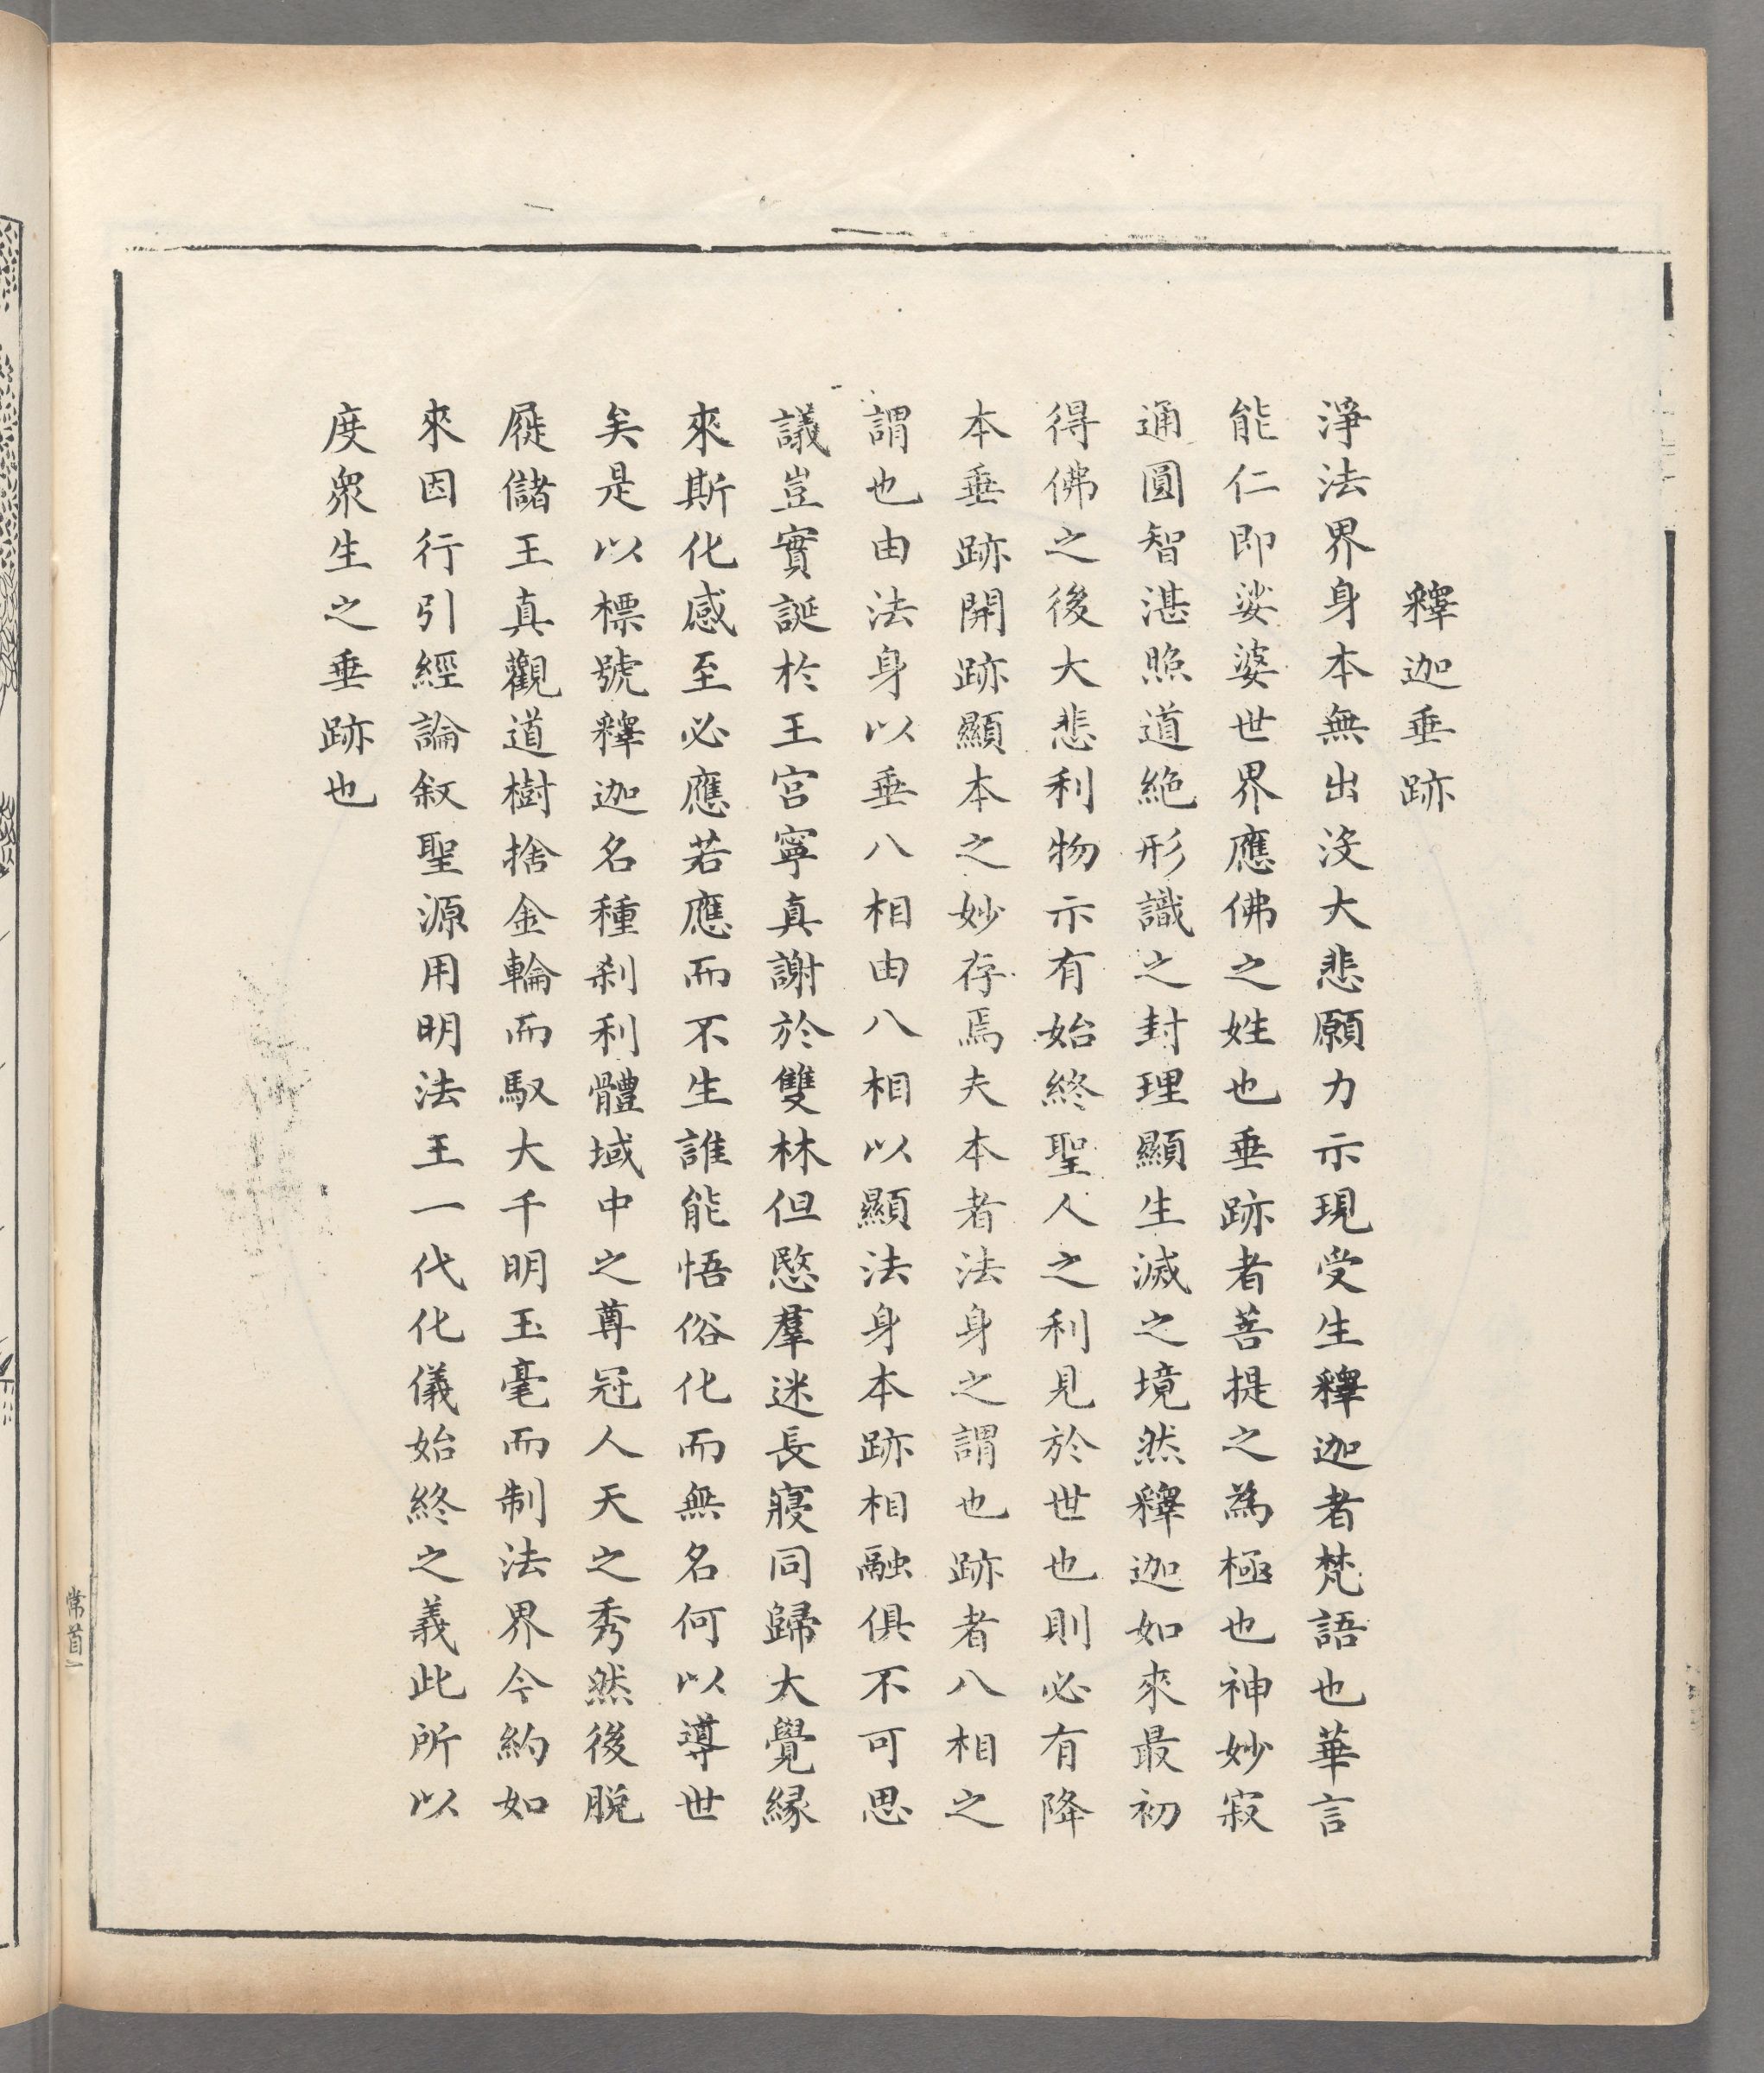 釋迦垂跡
淨法界身本無出沒大悲願力示現受生釋迦者梵語也華言
能仁即娑婆世界應佛之姓也垂跡者菩提之為極也神妙寂
通圓智湛照道絕形識之封理顯生滅之境然釋迦如來最初
得佛之後大悲利物示有始終聖人之利見於世也則必有降
本垂跡開跡顯本之妙存焉夫本者法身之謂也跡者八相之
謂也由法身以垂八相由八相以顯法身本跡相融俱不可思
議豈實誕於王宮寧真謝於雙林但愍羣迷長寢同歸大覺緣
來斯化感至必應若應而不生誰能悟俗化而無名何以導世
矣是以標號釋迦名種刹利體域中之尊冠人天之秀然後脫
屣儲王真觀道樹捨金輪而馭大千明玉毫而制法界今約如
來因行引經論敘聖源用明法王一代化儀始終之義此所以
度衆生之垂跡也
常首